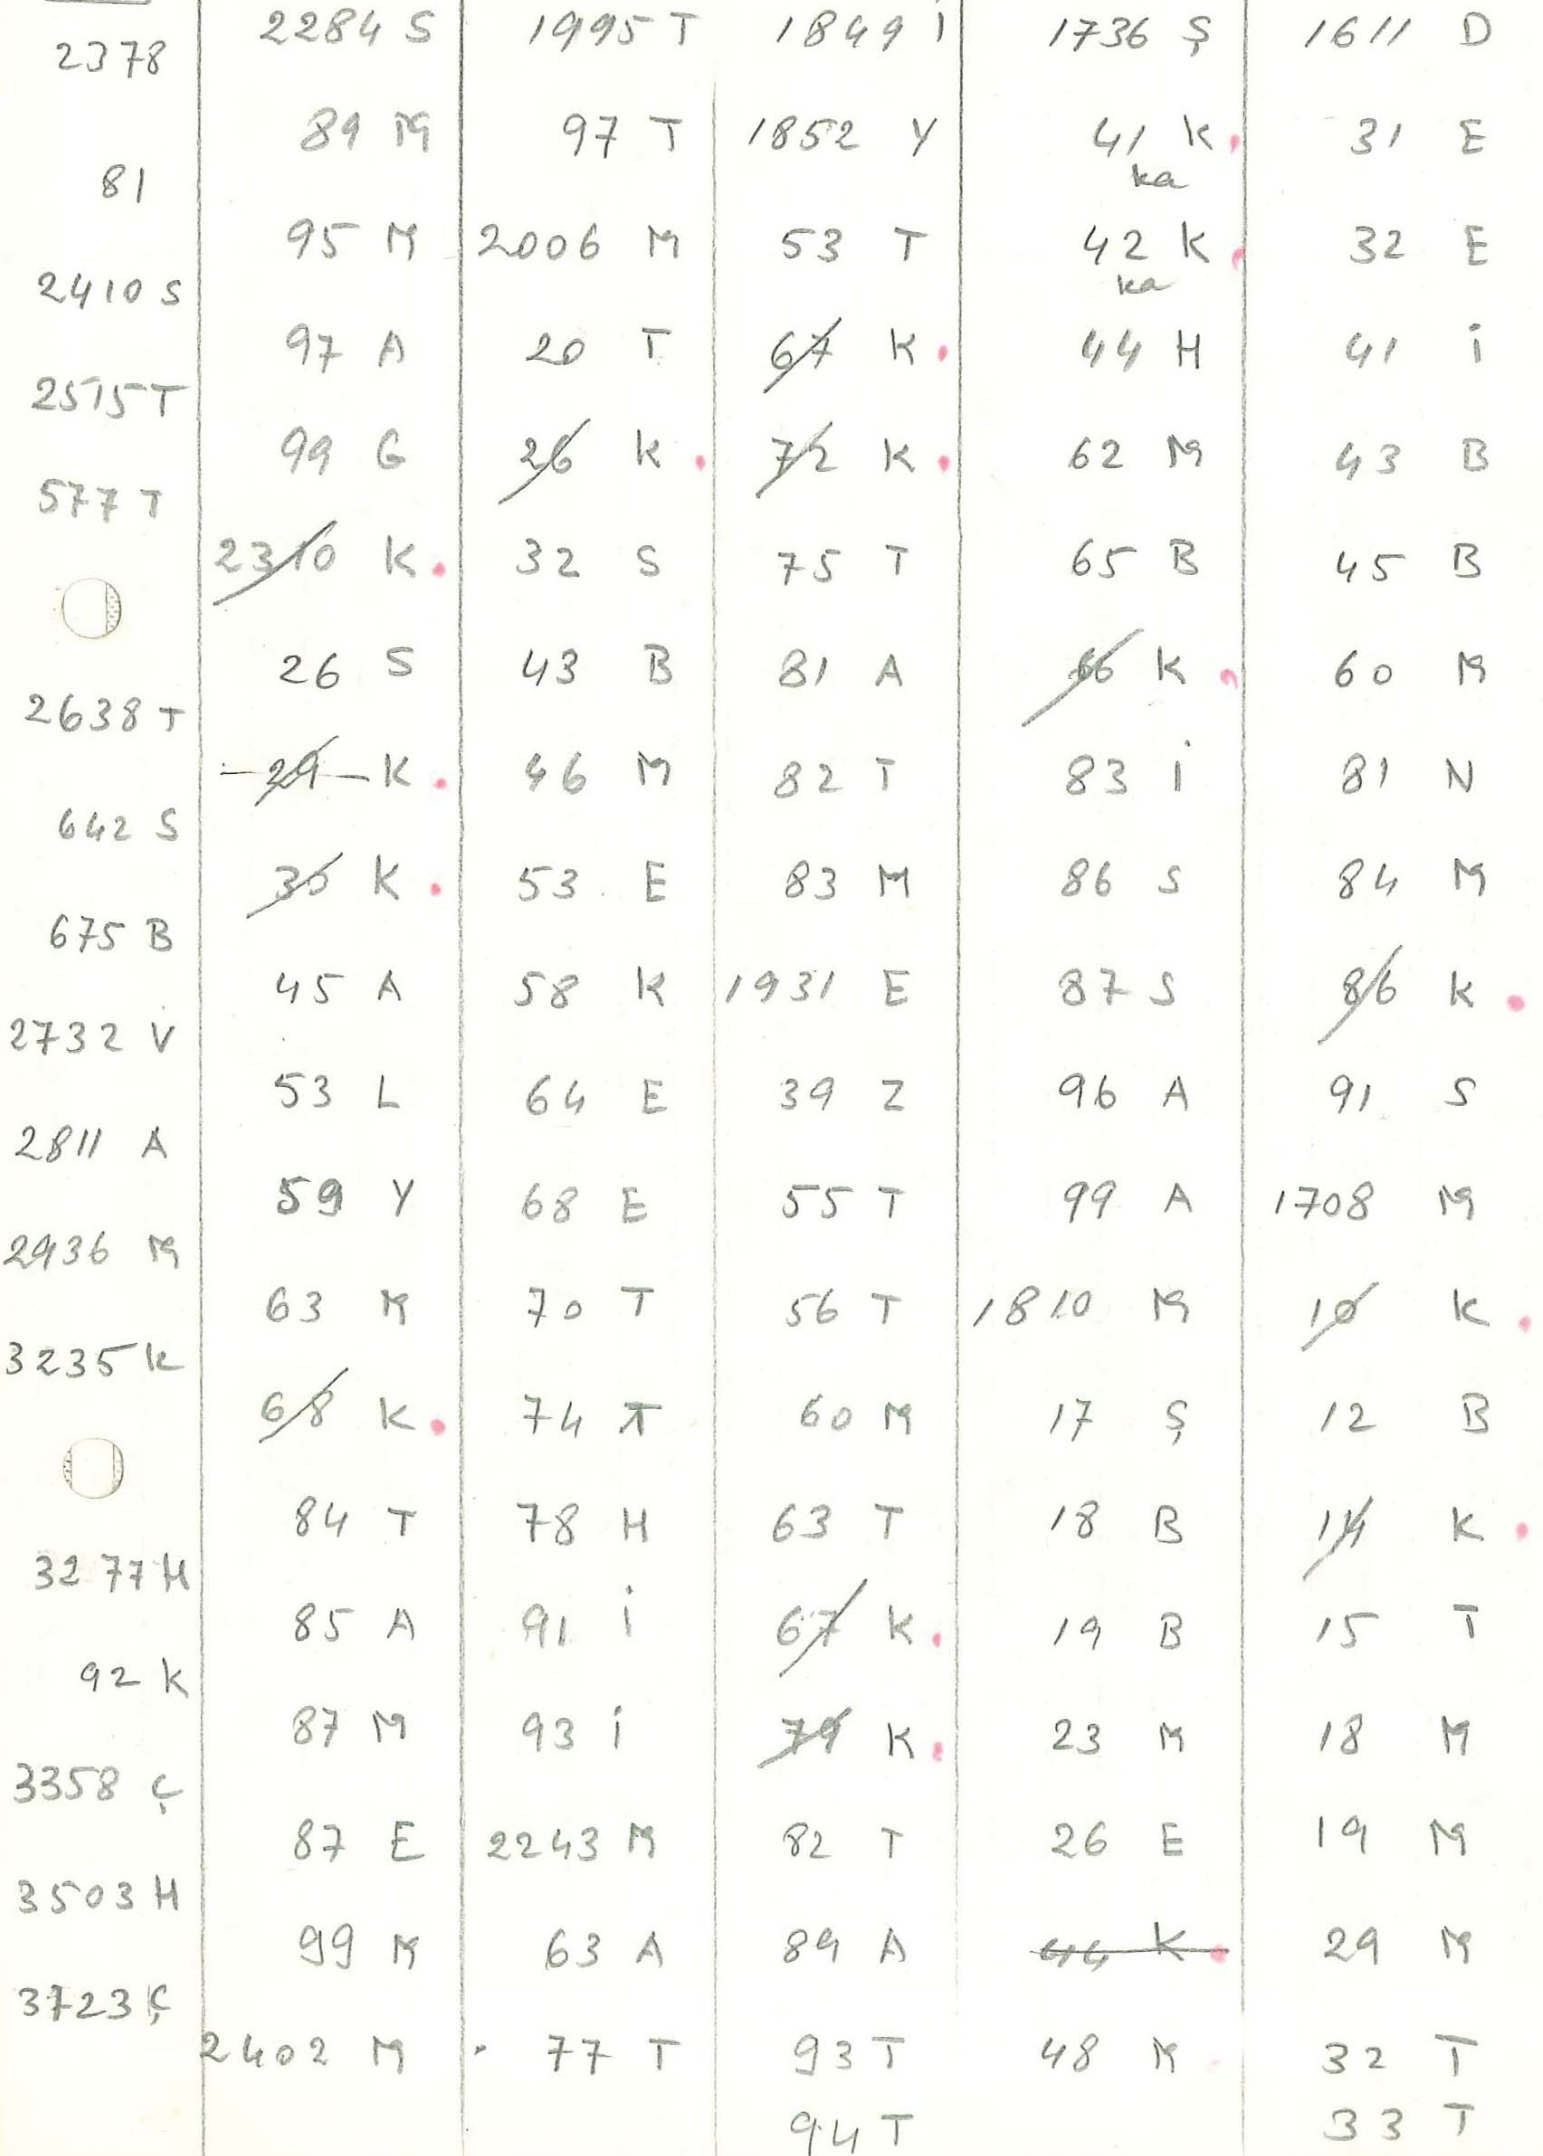 2378
81
2410 S
2515 T
577 T
2638 T
642 S
675 B
2732 V
2811 A
2936 M
3235 K
3277 H
92 K
3358 Ç
3503 H
3723 Ç
2284 S
89 M
95 M
97 A
99 G
2310 K.
26 S
29 K.
K.
45 A
53 L
59 Y
63 M
68 K.
84 T
85 A
87 M
87 E
99 M
2402 M
1995 T
97 T
2006 M
20 T
26 K.
32 S
43 B
46 M
53 E
58 K
64 E
68 E
70 T
74 T
78 H
91 İ
93 İ
2243 M
63 A
77 T
1849 İ
1852 Y
53 T
67 K.
72 K.
75 T
81 A
82 T
83 M
1931 E
39 Z
55 T
56 T
60 M
63 T
67 K.
79 K.
82 T
89 A
93 T
94 T
1736 Ş
41 K.
ka
42 K.
ka
44 H
62 M
65 B
66 K.
83 İ
86 S
87 S
96 A
99 A
1810 M
17 Ş
18 B
19 B
23 M
26 E
44 K.
48 M
1611 D
31 E
32 E
41 İ
43 B
45 B
60 M
81 N
84 M
86 K.
91 S
1708 M
10 K.
12 B
14 K.
15 T
18 M
19 M
29 M
32 T
33 T